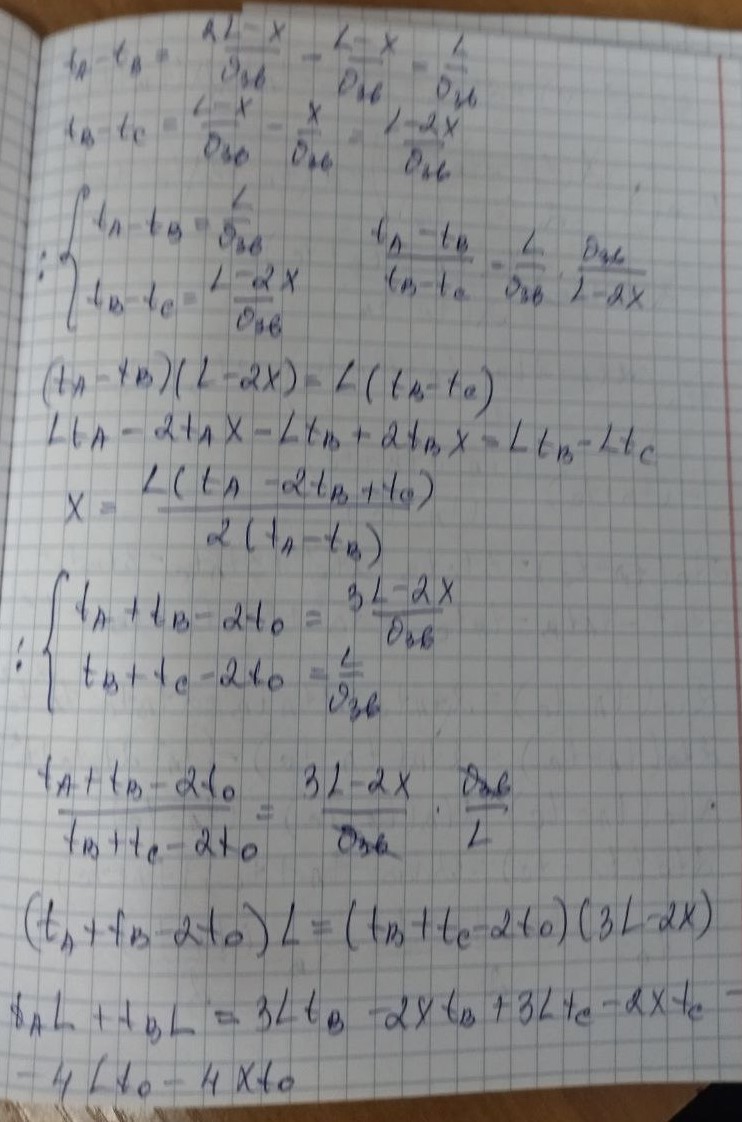 tA - tB = 2L-x/υзв - L-x/υзв = L/υзв
tB - tC = L-x/υзв - x/υзв = L-2x/υзв
: { tA - tB = L/υзв
tB - tC = L-2x/υзв
tA - tB/tB - tC = L/υзв · υзв/L-2x
(tA - tB)(L-2x) = L(tB - tC)
LtA - 2tAx - LtB + 2tBx = LtB - LtC
x = L(tA - 2tB + tC)/2(tA - tB)
: { tA + tB - 2t0 = 3L-2x/υзв
tB + tC - 2t0 = L/υзв
tA + tB - 2t0/tB + tC - 2t0 = 3L-2x/υзв · υзв/L
(tA + tB - 2t0)L = (tB + tC - 2t0)(3L-2x)
tAL + tBL = 3LtB - 2xtB + 3LtC - 2xtC -
- 4Lt0 - 4xt0